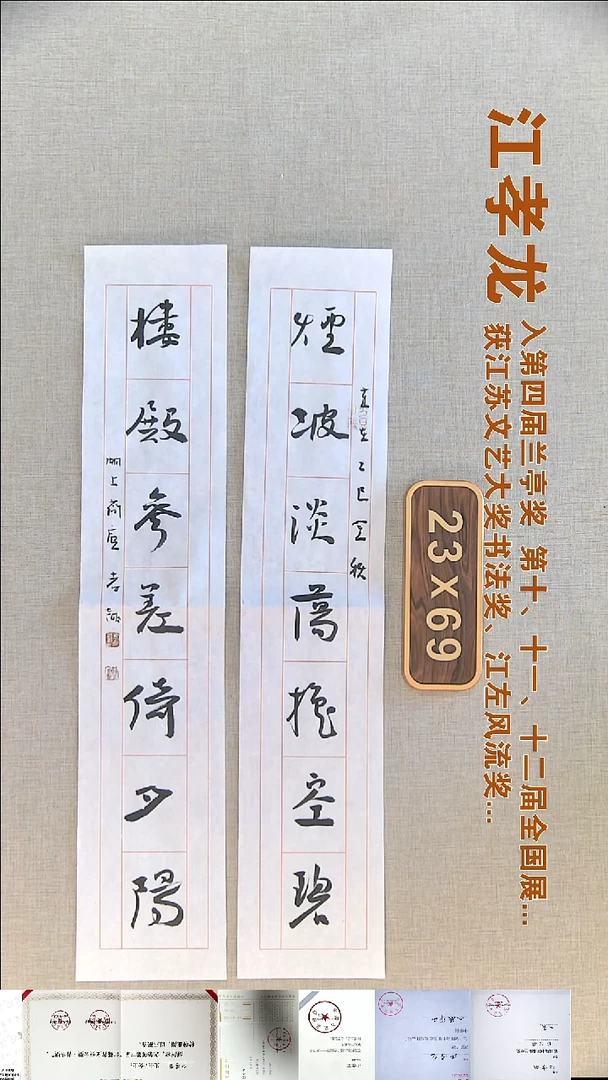 江孝龙
入第四届兰亭奖 第十、十一、十二届全国展...
获江苏文艺大奖书法奖、江左风流奖...
23x69
乙巳金秋
煙波淡蕩搖空碧
樓殿參差倚夕陽
湖上